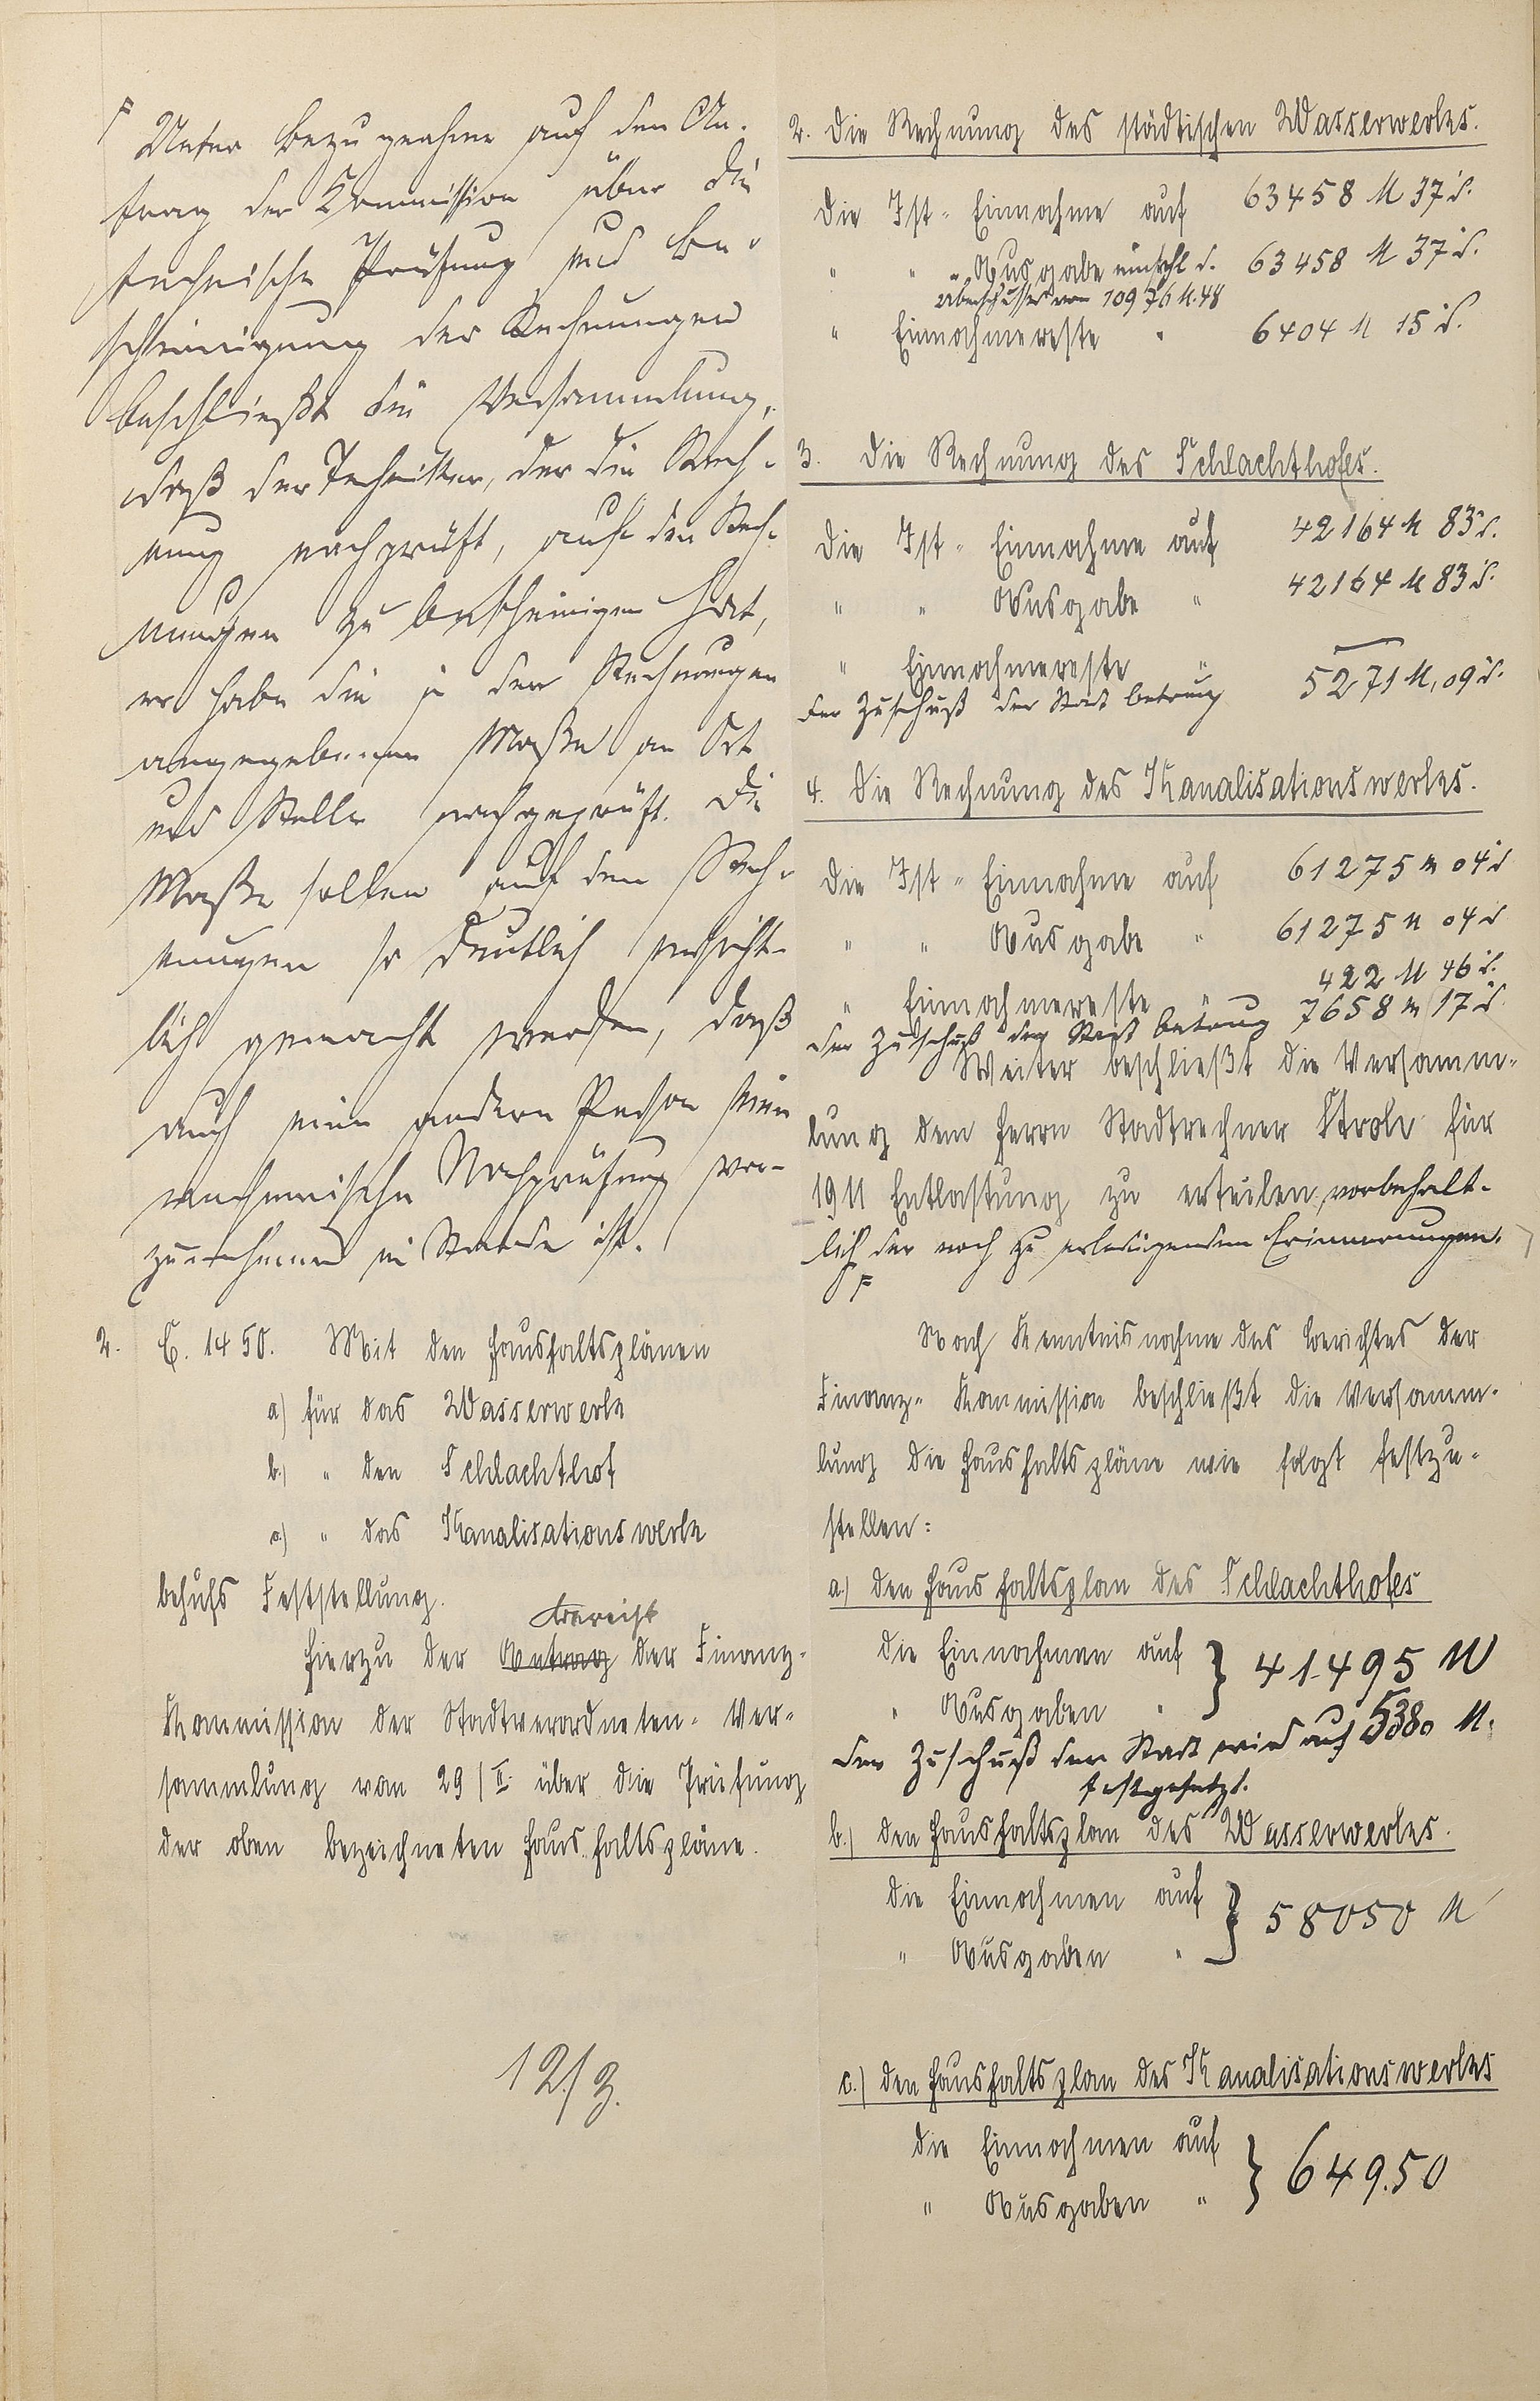 F Unter Bezugnahme auf den An-
trag der Kommission über die
technische Prüfung und Be-
scheinigung der Rechnungen
beschließt die Versammlung,
daß der Techniker, der die Rech-
nung nachprüft, auf den Rech-
nungen zu bescheinigen hat,
er habe die in den Rechnungen
angegebenen Maße an Ort
und Stelle nachgeprüft. Die
Maße sollen auf den Rech-
nungen so deutlich ersicht-
lich gemacht werden, daß
auch eine andere Person eine
rechnerische Nachprüfung vor-
zunehmen im Stande ist.
2. C. 1450. Mit den Haushaltsplänen
a) für das Wasserwerk
b.) " den Schlachthof
c) " das Kanalisationswerk
behufs Feststellung.
Bericht
Hierzu der Antrag der Finanz-
Kommission der Stadtverordneten-Ver-
sammlung von 29/II. über die Prüfung
der oben bezeichneten Haushaltspläne.
12./3.
2. Die Rechnung des städtischen Wasserwerkes.
Die Ist-Einnahme auf 63458 M 37 d.
" " " Ausgabe einschl d. 63458 M 37 d.
Überschusses von 10976 M. 48
" Einnahmereste " 6404 M 15 d.
3. Die Rechnung des Schlachthofes.
Die Ist-Einnahme auf 42164 M 83 d.
" " Ausgabe " 42164 M 83 d.
" Einnahmereste " —
Der Zuschuß der Stadt betrug 5271 M, 09 d.
4. Die Rechnung des Kanalisationswerkes.
Die Ist-Einnahme auf 61275 M 04 d
" " Ausgabe " 61275 M 04 d
" Einnahmereste " 422 M 46 d.
Der Zuschuß der Stadt betrug 7658 M 17 d.
Weiter beschließt die Versamm-
lung dem Herrn Stadtrechner Stroh für
1911 Entlastung zu erteilen, vorbehalt-
lich der noch zu erledigenden Erinnerungen.
F
Nach Kenntnisnahme des Berichtes der
Finanz-Kommission beschließt die Versamm-
lung die Haushaltspläne wie folgt festzu-
stellen:
a.) den Haushaltsplan des Schlachthofes
die Einnahmen auf } 41495 M
" Ausgaben "
Der Zuschuß der Stadt wird auf 5380 M.
festgesetzt.
b.) den Haushaltsplan des Wasserwerkes.
die Einnahmen auf } 58050 M
" Ausgaben "
c.) den Haushaltsplan des Kanalisationswerkes
die Einnahmen auf } 649.50
" Ausgaben "